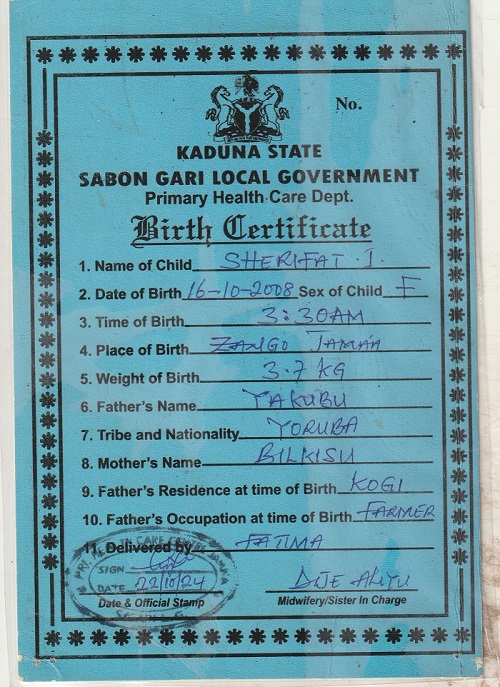 No.
KADUNA STATE
SABON GARI LOCAL GOVERNMENT
Primary Health Care Dept.
Birth Certificate
1. Name of Child SHERIFAT . I.
2. Date of Birth 16-10-2008 Sex of Child F
3. Time of Birth 3:30AM
4. Place of Birth ZANGO
5. Weight of Birth 3.7 KG
6. Father's Name YAKUBU
7. Tribe and Nationality YORUBA
8. Mother's Name BILKISU
9. Father's Residence at time of Birth KOGI
10. Father's Occupation at time of Birth FARMER
11. Delivered by FATIMA
CARE
SIGN
DATE 22/10/24
DIJE ALIYU
Date & Official Stamp Midwifery/Sister In Charge